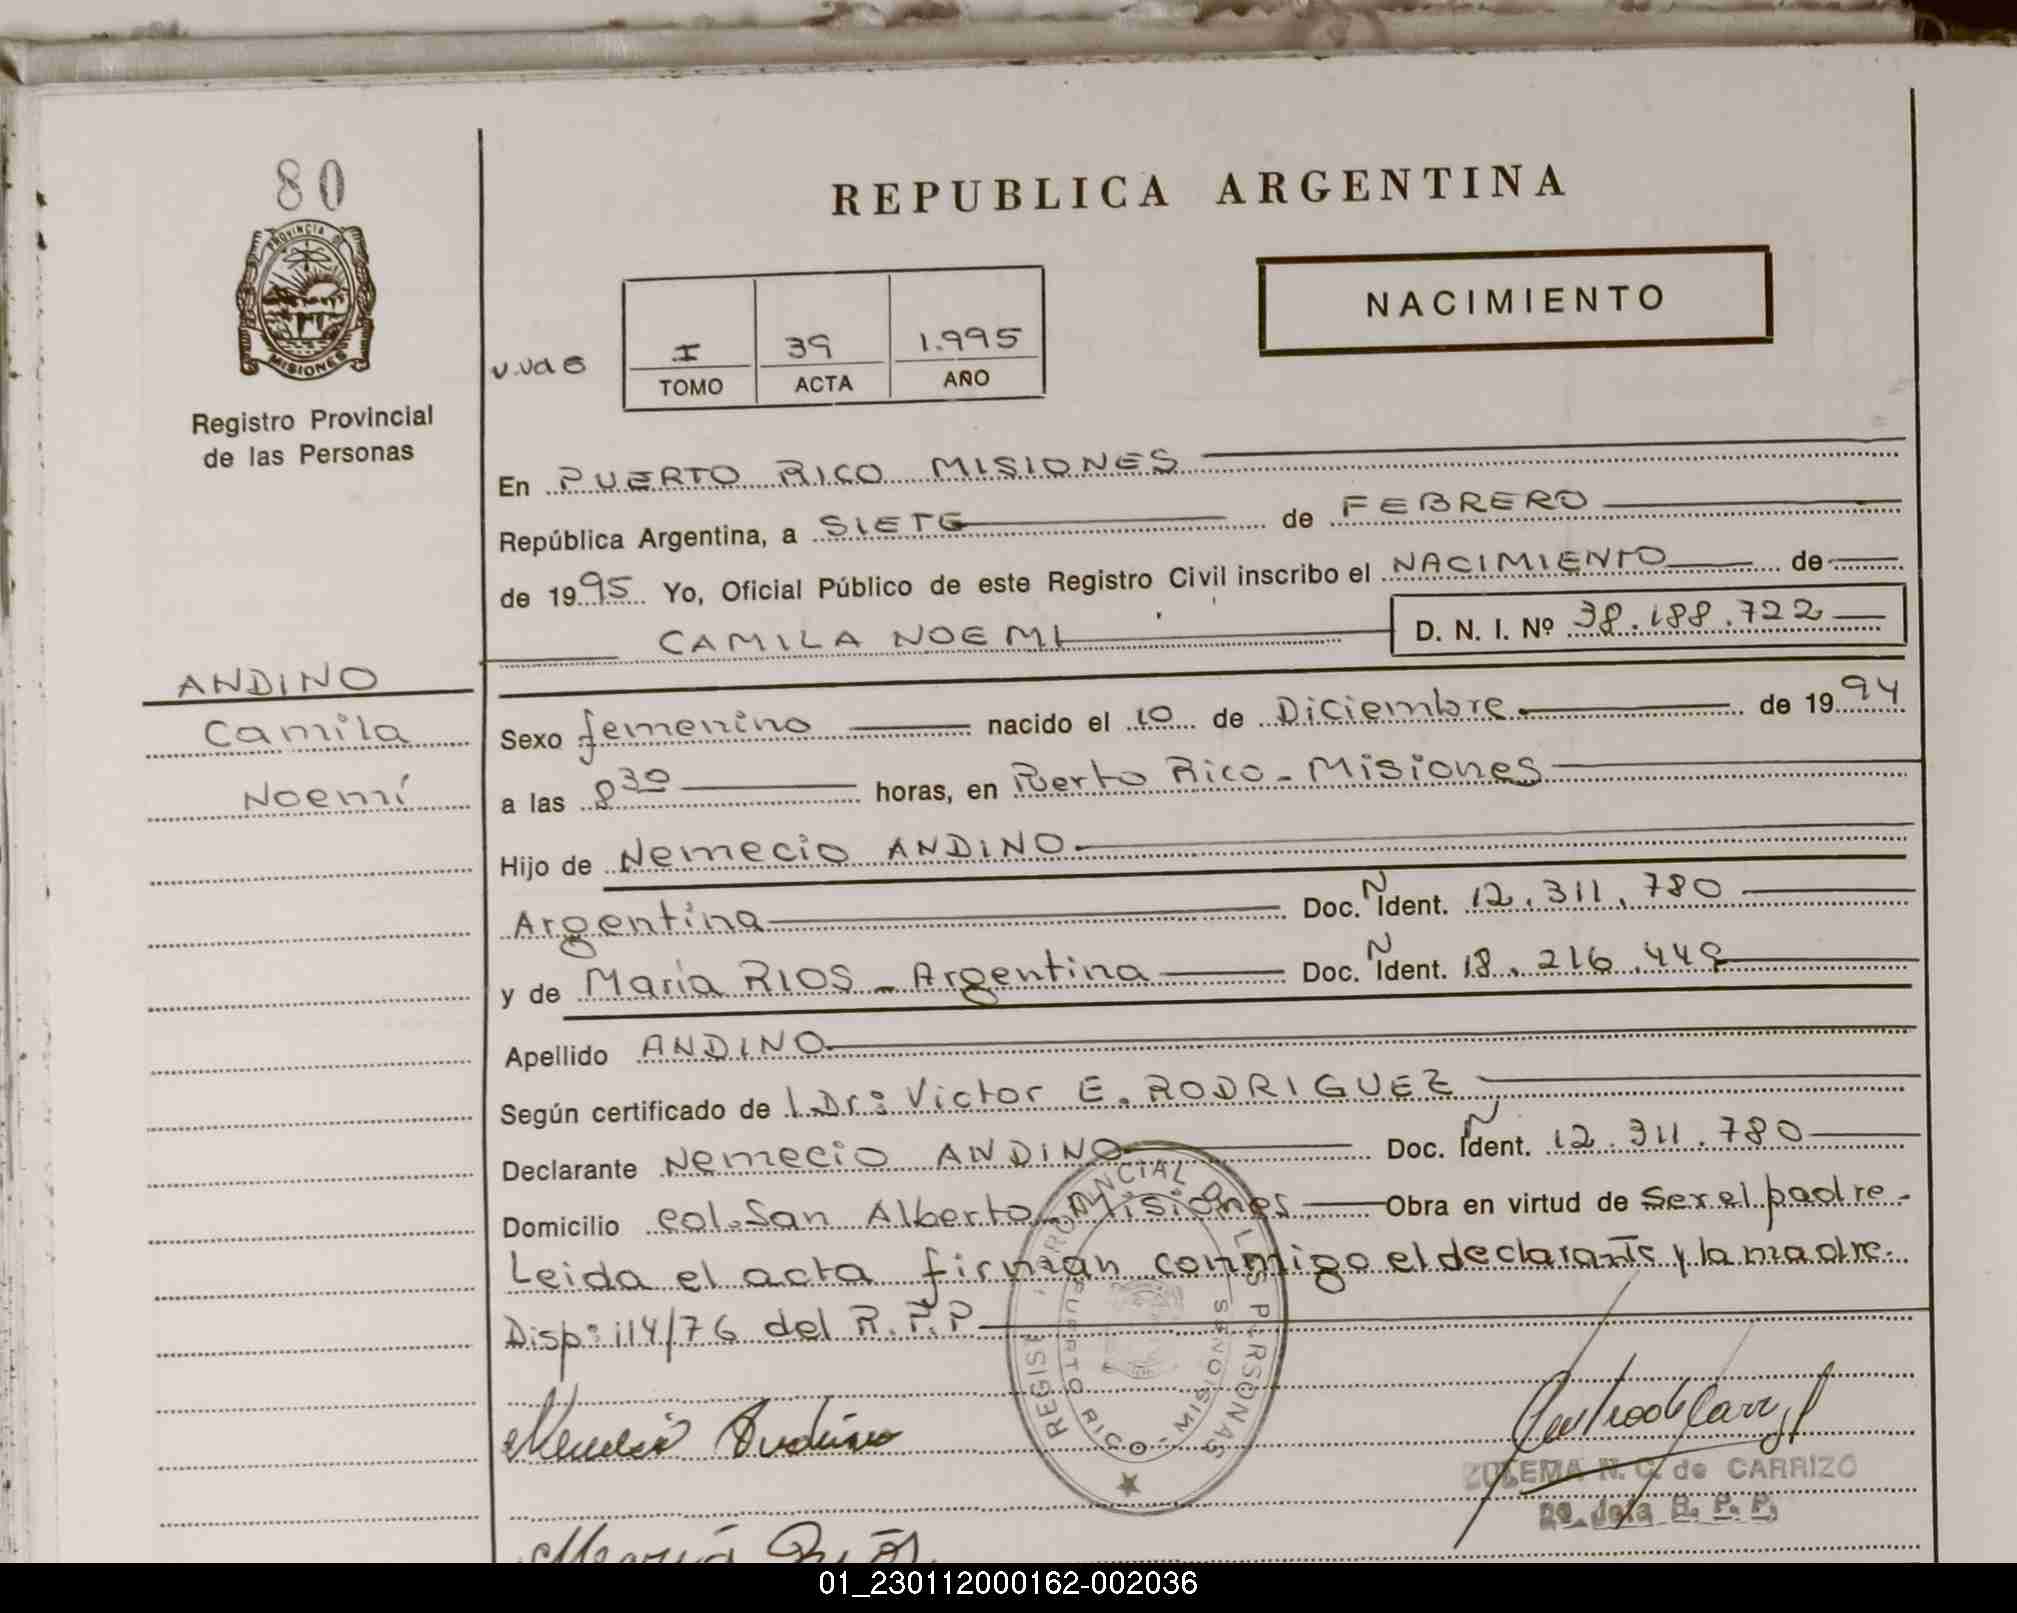 80
PROVINCIA DE
MISIONES
Registro Provincial
de las Personas
REPUBLICA ARGENTINA
NACIMIENTO
I 39 1.995
TOMO ACTA AÑO
En PUERTO RICO MISIONES
República Argentina, a SIETE de FEBRERO
de 1995 Yo, Oficial Público de este Registro Civil inscribo el NACIMIENTO de
CAMILA NOEMI D. N. I. Nº 38.188.722
ANDINO
Camila
Noemí
Sexo femenino nacido el 10 de Diciembre de 1994
a las 8 30 horas, en Puerto Rico - Misiones
Hijo de Nemecio ANDINO
Argentina Doc. N Ident. 12.311.780
y de María RIOS - Argentina Doc. N Ident. 18.216.449
Apellido ANDINO
Según certificado de Dr: Victor E. RODRIGUEZ
Declarante Nemecio ANDINO Doc. N Ident. 12.311.780
Domicilio Col. San Alberto - Misiones Obra en virtud de Ser el padre -
Leida el acta firman conmigo el declarante y la madre.
Disp: 114/76 del R.P.P
REGIST PROVINCIAL DE LAS PERSONAS
PUERTO RICO - MISIONES
Nemecio Andino
ZULEMA N. C. de CARRIZO
R. P. P.
María Ríos
01_230112000162-002036